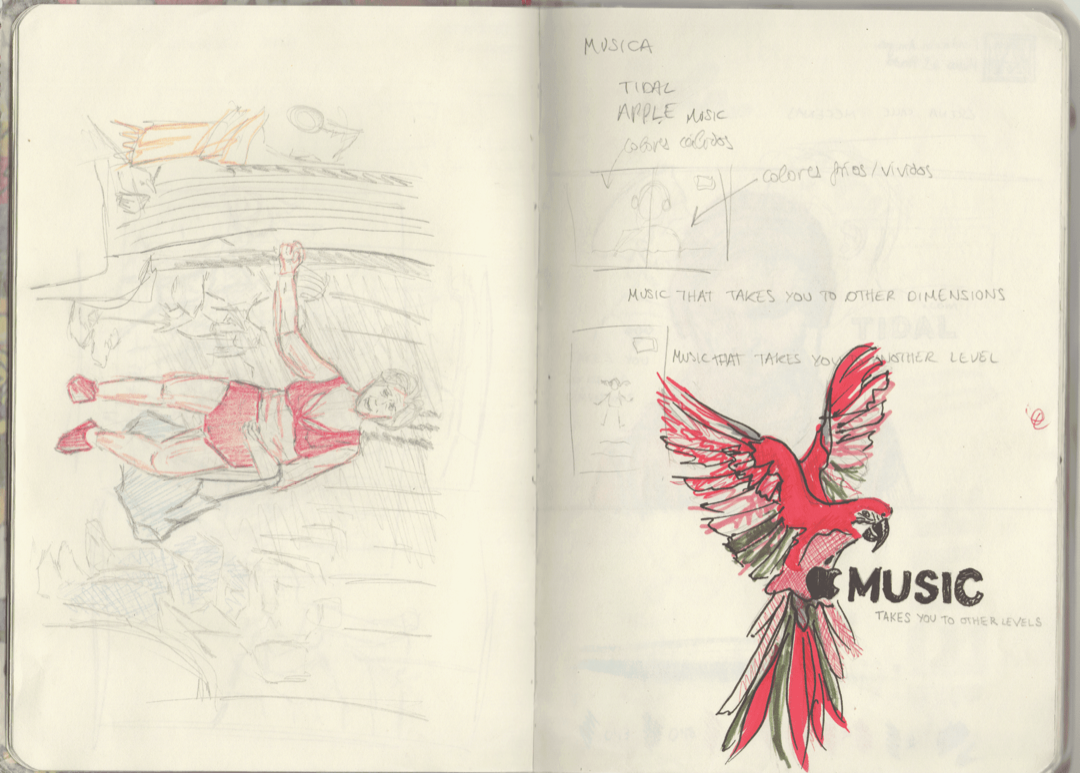 MUSICA
TIDAL
APPLE MUSIC
colores cálidos
colores fríos/vividos
MUSIC THAT TAKES YOU TO OTHER DIMENSIONS
MUSIC THAT TAKES YOU ANOTHER LEVEL
MUSIC
TAKES YOU TO OTHER LEVELS
TIDAL